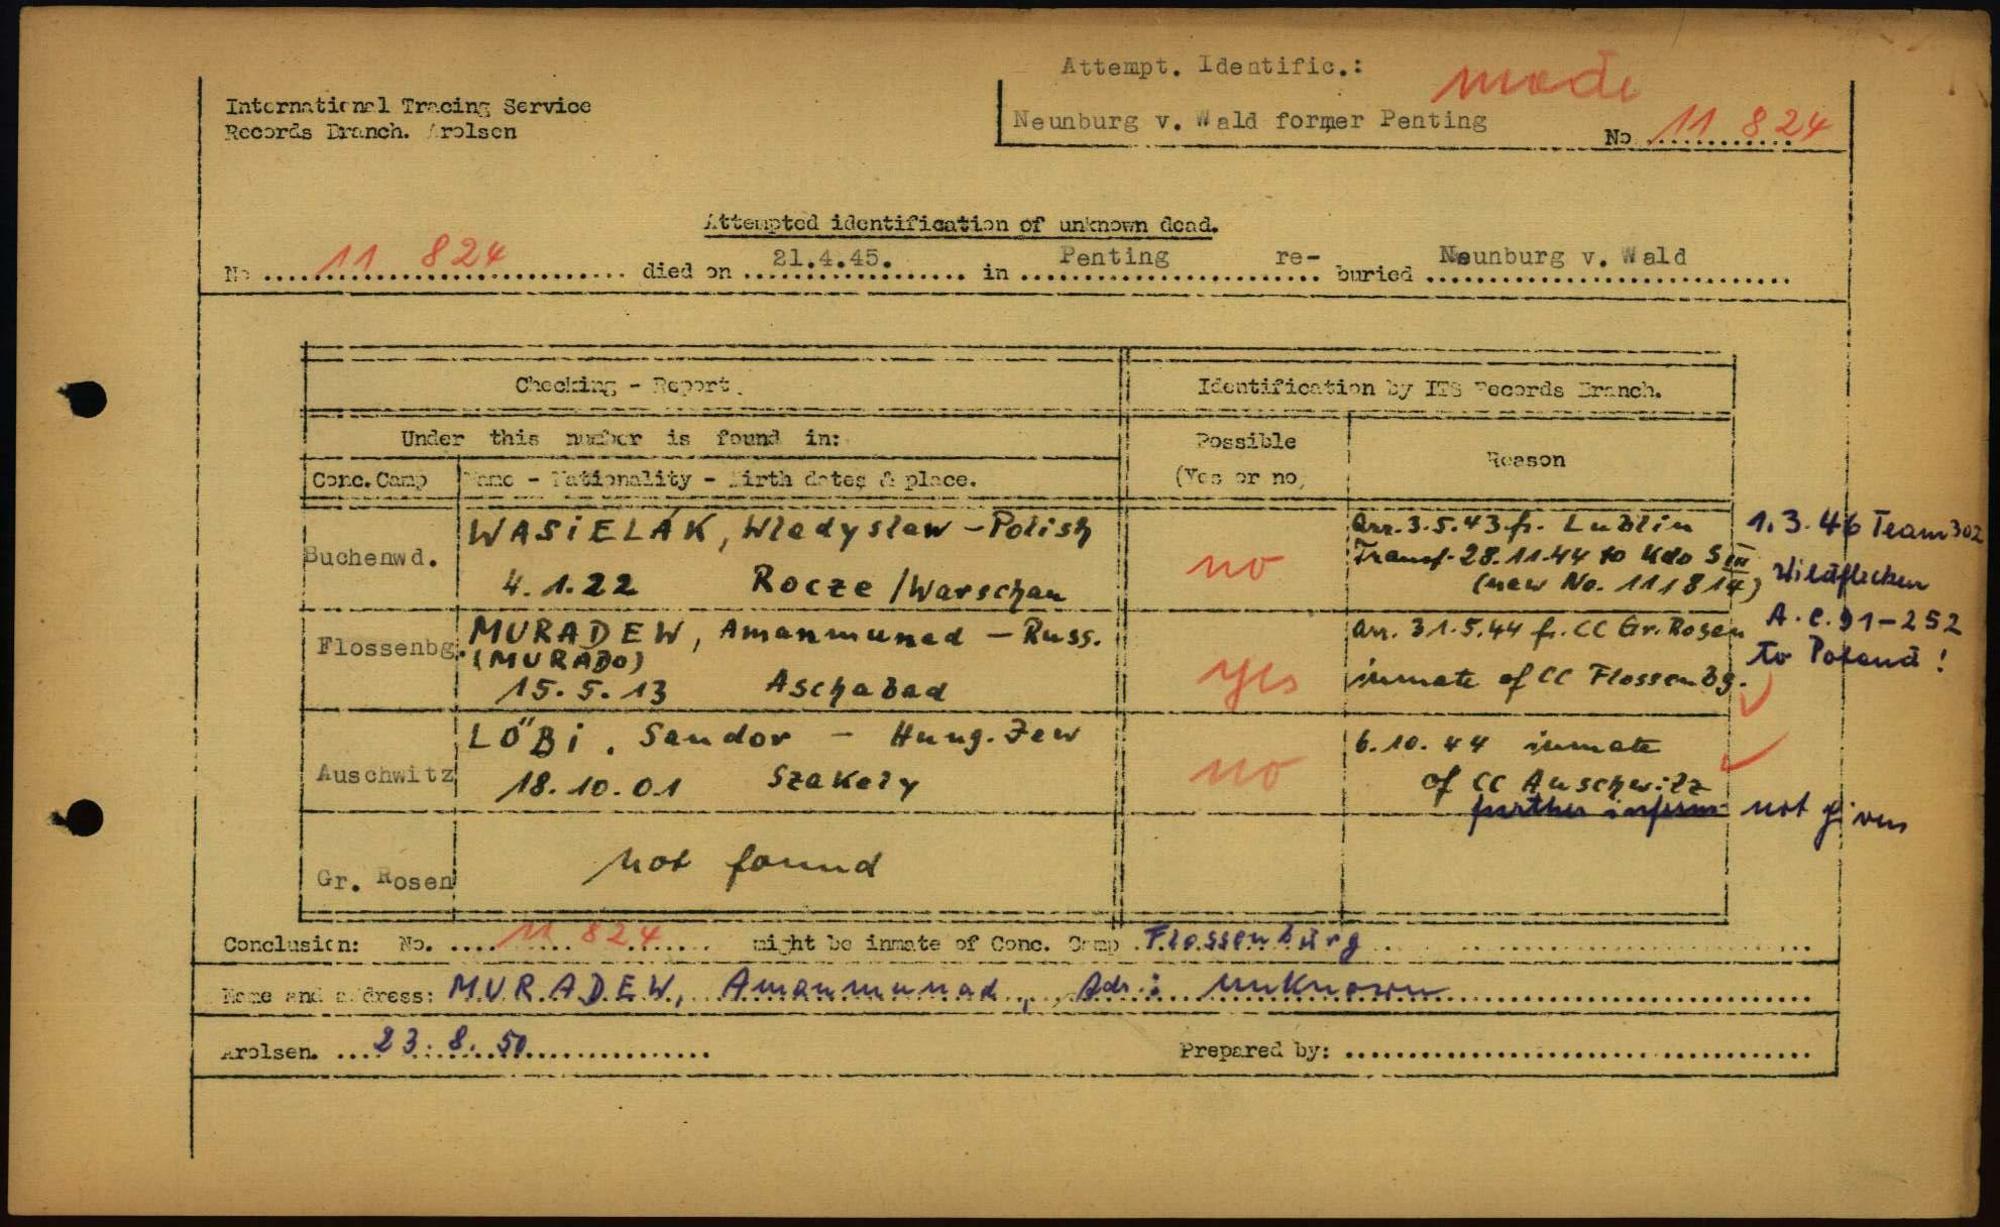 Attempt. Identific.: made
International Tracing Service
Records Branch. Arolsen
Neunburg v. Wald former Penting
No 11 824
Attempted identification of unknown dead.
No 11 824 died on 21.4.45. in Penting re-buried Neunburg v. Wald
Checking - Report.
Identification by ITS Records Branch.
Under this number is found in:
Possible (Yes or no)
Reason
Conc. Camp
Name - Nationality - Birth dates & place.
Buchenwd.
WASIELAK, Wladyslaw - Polish
4.1.22 Rocze / Warschau
no
Arr. 3.5.43 fr. Lublin
Transf. 28.11.44 to Kdo S III
(new No. 111814)
1.3.46 Team 302
Wildflecken
A.C. 91-252
to Poland!
Flossenbg.
MURADEW, Amanmunad - Russ.
(MURADO)
15.5.13 Aschabad
yes
arr. 31.5.44 fr. CC Gr. Rosen
inmate of CC Flossenbg.
Auschwitz
LÖBI, Sandor - Hung. Jew
18.10.01 Szakely
no
6.10.44 inmate
of CC Auschwitz
further inform not given
Gr. Rosen
not found
Conclusion: No. 11 824 might be inmate of Conc. Camp Flossenbürg
Name and address: MURADEW, Amanmunad, Adr.: unknown
Arolsen. 23.8.50
Prepared by: